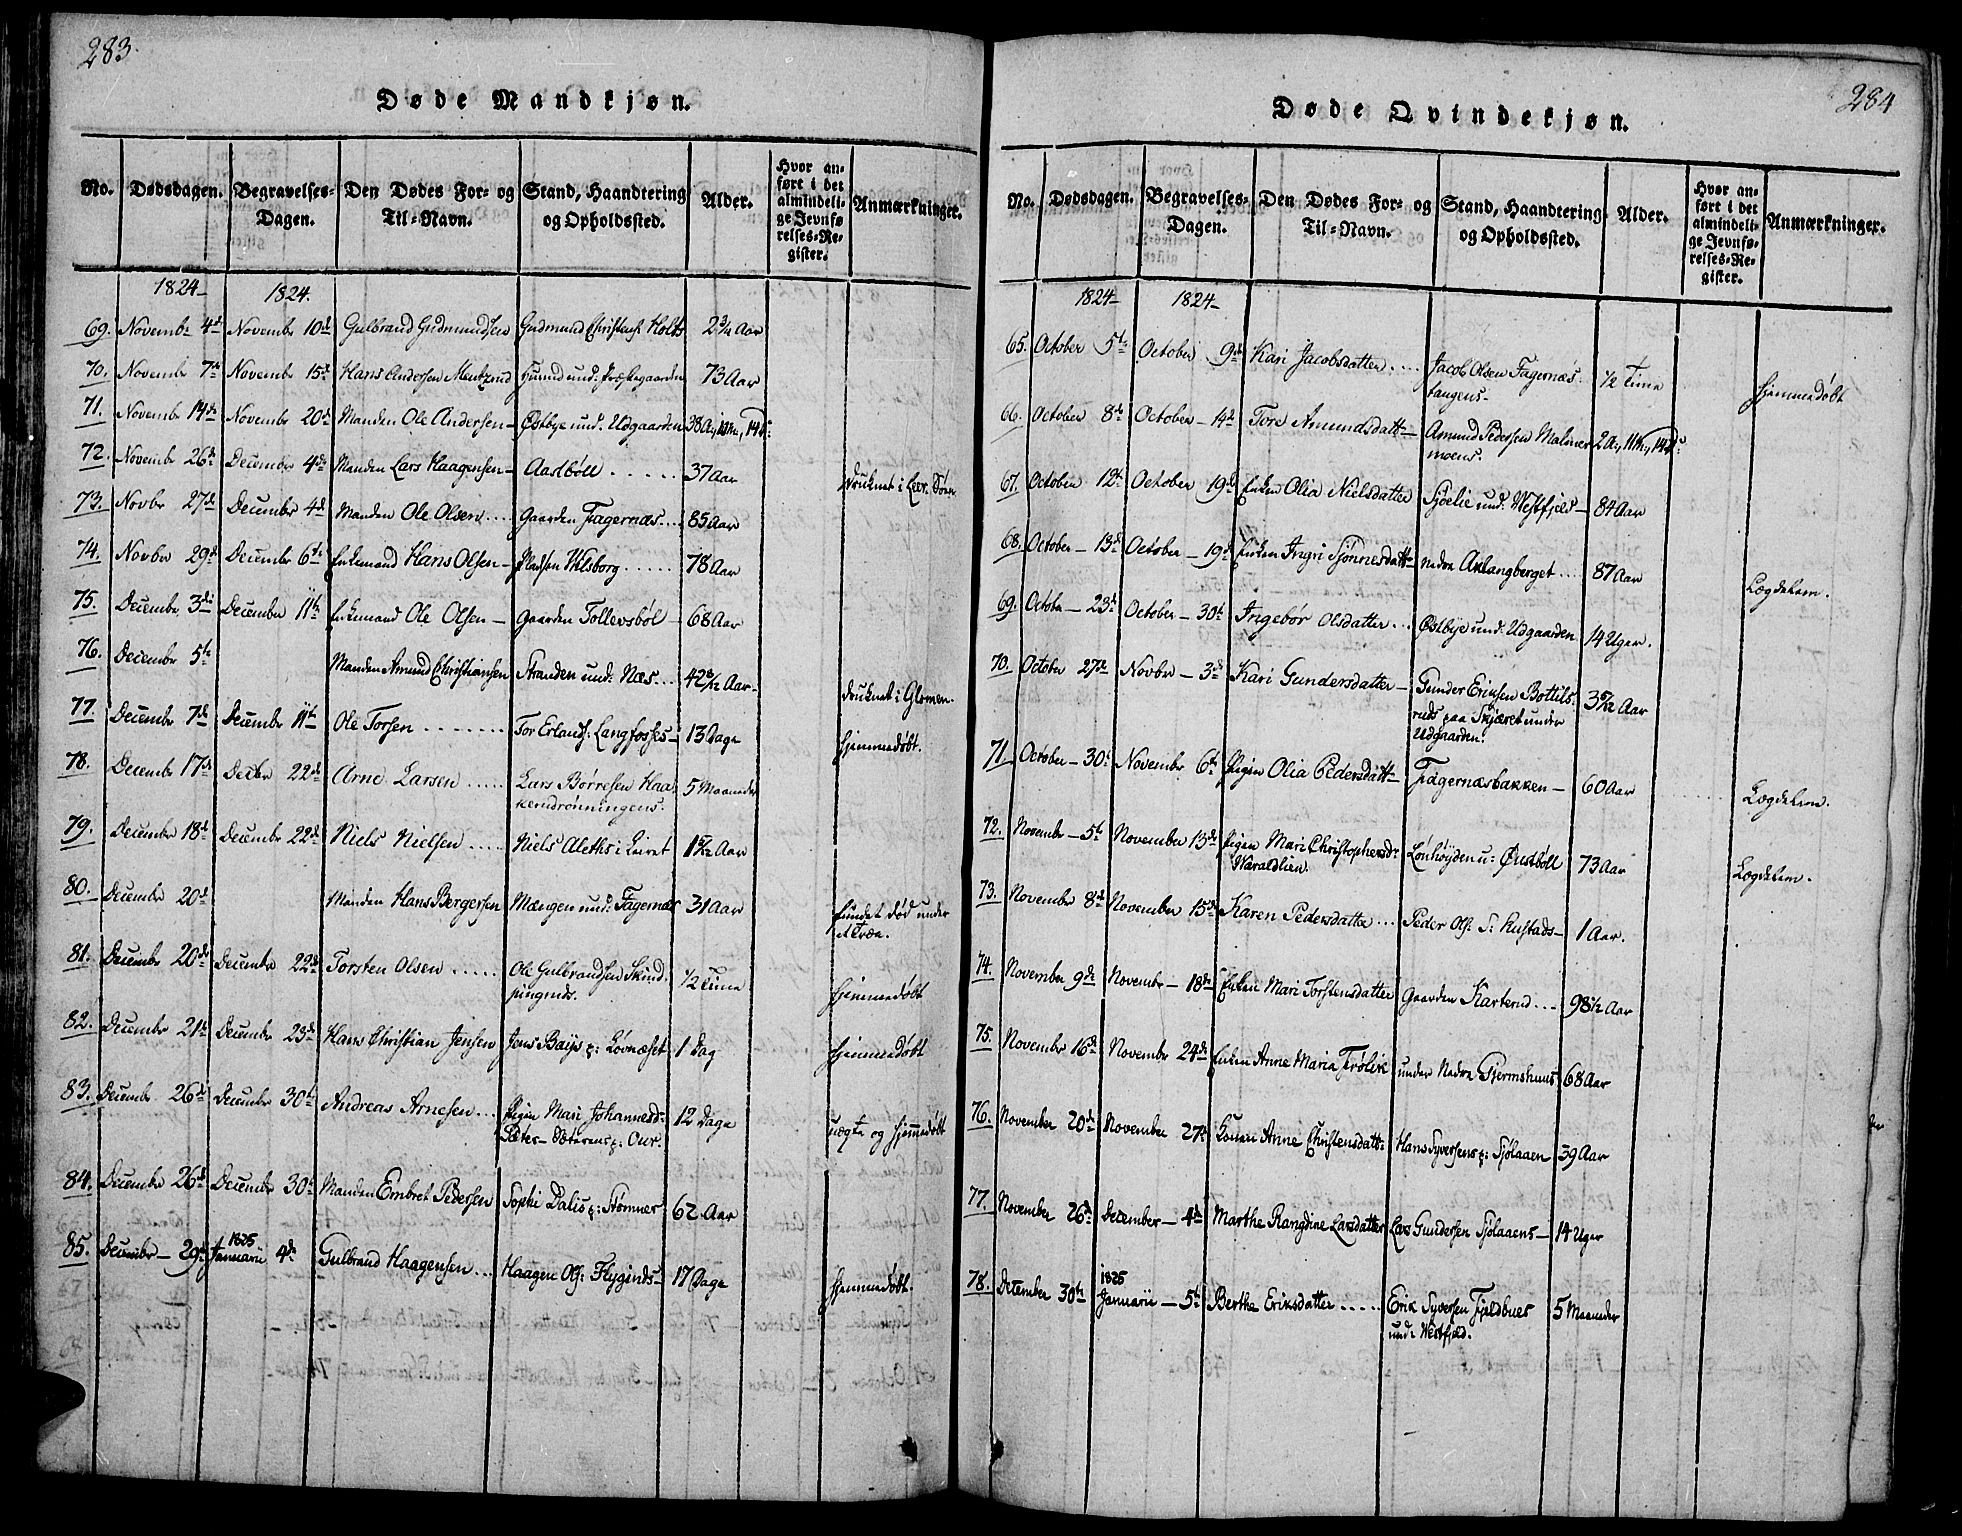 283.
Døde Mandkjøn.
No. Dødsdagen. Begravelses-Dagen. Den Dødes For- og Til-Navn. Stand, Haandtering og Opholdssted. Alder. Hvor anført i det almindelige Jevnførelses-Register. Anmærkninger.
1824 1824.
69. Novembr 4d Novembr 10d Gulbrand Gudmundsen Gudmund Christens: Holts 2 3/4 Aar
70. Novembr 7de Novembr 15d Hans Andersen Mentzrud Huusmd und: Præstegaarden 73 Aar
71. Novembr 14de Novembr 20d Manden Ole Andersen Østbye und. Udgaarden 38 A, 10 M, 14 D:
72. Novembr 26d Decembr 4de Manden Lars Haagensen Aasbøll 37 Aar druknet i Søen
73. Novbr 27d Decembr 4d Manden Ole Olsen Gaarden Fagernæs 85 Aar
74. Novbr 29d Decembr 6te Enkemand Hans Olsen Pladsen Vilsborg 78 Aar
75. Decembr 3di Decembr 11te Enkemand Ole Olsen Gaarden Tollersbøl 68 Aar
76. Decembr 5te Manden Amund Christiansen Stranden und: Næs 42 8/12 Aar druknet i Glomen
77. Decembr 7d Decembr 11te Ole Torsen Tor Erlands: Langfosses 13 Dage hjemmedøbt.
78. Decembr 17d Decbr 22d Arne Larsen Lars Børresen Haa-
kendrønningens. 5 Maaneder
79. Decembr 18d Decembr 22d Niels Nielsen Niels Aleths i Leiret 1 5/12 Aar
80. Decembr 20d Manden Hans Bergersen Mængen und: Fagernæs 31 Aar fundet død under
et Træe.
81. Decembr 20d Decembr 22d Torsten Olsen Ole Gulbrandsen Skind-
pungruds. 1/2 Time hjemmedøbt
82. Decembr 21d Decembr 23d Hans Christian Jensen Jens Bays p: Løvnæset 1 Dag hjemmedøbt
83. Decembr 26d Decembr 30te Andreas Arnesen Pigen Mari Johannesd:
Sæter- Sæterens p: Our. 12 Dage uægte og hjemmedøbt
84. Decembr 26d Decembr 30te Manden Embret Pedersen Sophi Dalis p: Stømner 62 Aar
85. Decembr 29d 1825 Januarii 4de Gulbrand Haagensen Haagen Ols: Flyginds 17 Dage hjemmedøbt.
284
Døde Qvindekjøn.
No. Dødsdagen. Begravelses-Dagen. Den Dødes For- og Til-Navn. Stand, Haandtering og Opholdssted. Alder. Hvor anført i det almindelige Jevnførelses-Register. Anmærkninger.
1824 1824
65. October 5te October 9de Kari Jacobsdatter Jacob Olsen Fagernæs-
tangens 1/2 Time hjemmedøbt
66. October 8de October 14d Tore Amundsdatt Amund Pedersen Malmer-
moens. 2 A, 11 M, 14 D:
67. October 12te October 19d Enken Olia Nielsdatter Sjøelie und. Westfjeld 84 Aar
68. October 13d October 19d Enken Ingri Sjønnesdatt Nedre Aklangberget 87 Aar Lægdslem.
69. October 23d October 30te Ingebør Olsdatter Østbye und: Udgaarden 14 Uger.
70. October 27d Novbr 3de Kari Gundersdatter Gunder Eriksen Bottils-
ruds paa Skjæret under
Udgaarden. 3 5/12 Aar
71. October 30te November 6te Pigen Olia Pedersdatt Fagernæsbakken 60 Aar Lægdslem.
72. November 5te November 13de Pigen Mari Christophersd:
Haraldlien. Lønhøyden u: Øudbøll 73 Aar Lægdslem.
73. November 8d November 15d Karen Pedersdatter Peder Ols: S: Rustads 1 Aar.
74. November 9de Novembr 18de Enken Mari Torstensdatter Gaarden Karterud 98 1/2 Aar
75. November 16d November 24de Enken Anne Maria Frølik under Nedre Gjermshuus 68 Aar
76. November 20de November 27de Konen Anne Christensdatt: Hans Syversens p: Sjølaaen 39 Aar
77. November 26d December 4de Marthe Rangdine Larsdatter Lars Gundersen Sjølaaens 14 Uger
78. December 30te 1825 Januarii 5te Berthe Eriksdatter Erik Syversen Fjeldbues
und: Westfjeld. 5 Maaneder